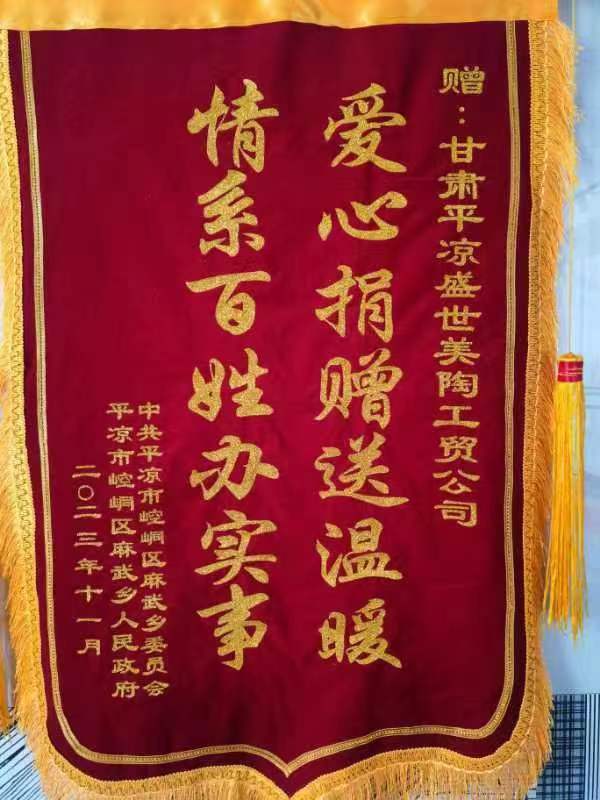 赠：甘肃平凉盛世美陶工贸公司
爱心捐赠送温暖
情系百姓办实事
中共平凉市崆峒区麻武乡委员会
平凉市崆峒区麻武乡人民政府
二〇二三年十一月